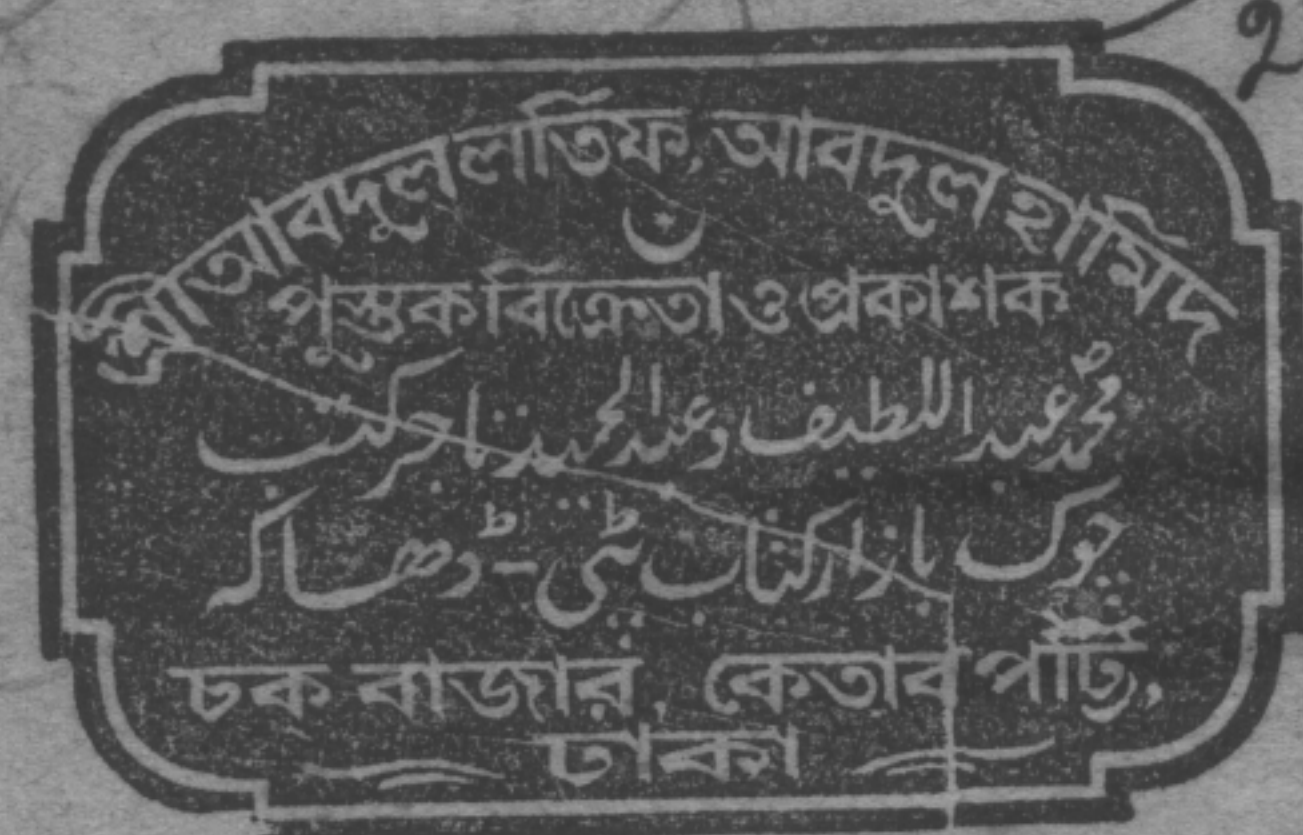 শ্রীআবদুল লতিফ, আবদুল হামিদ
পুস্তক বিক্রেতা ও প্রকাশক
محمد عبد اللطيف وعبد الحميد تاجر كتب
چوک بازار کتاب پٹی - ڈھاکہ
চক বাজার, কেতাব পট্টি,
ঢাকা